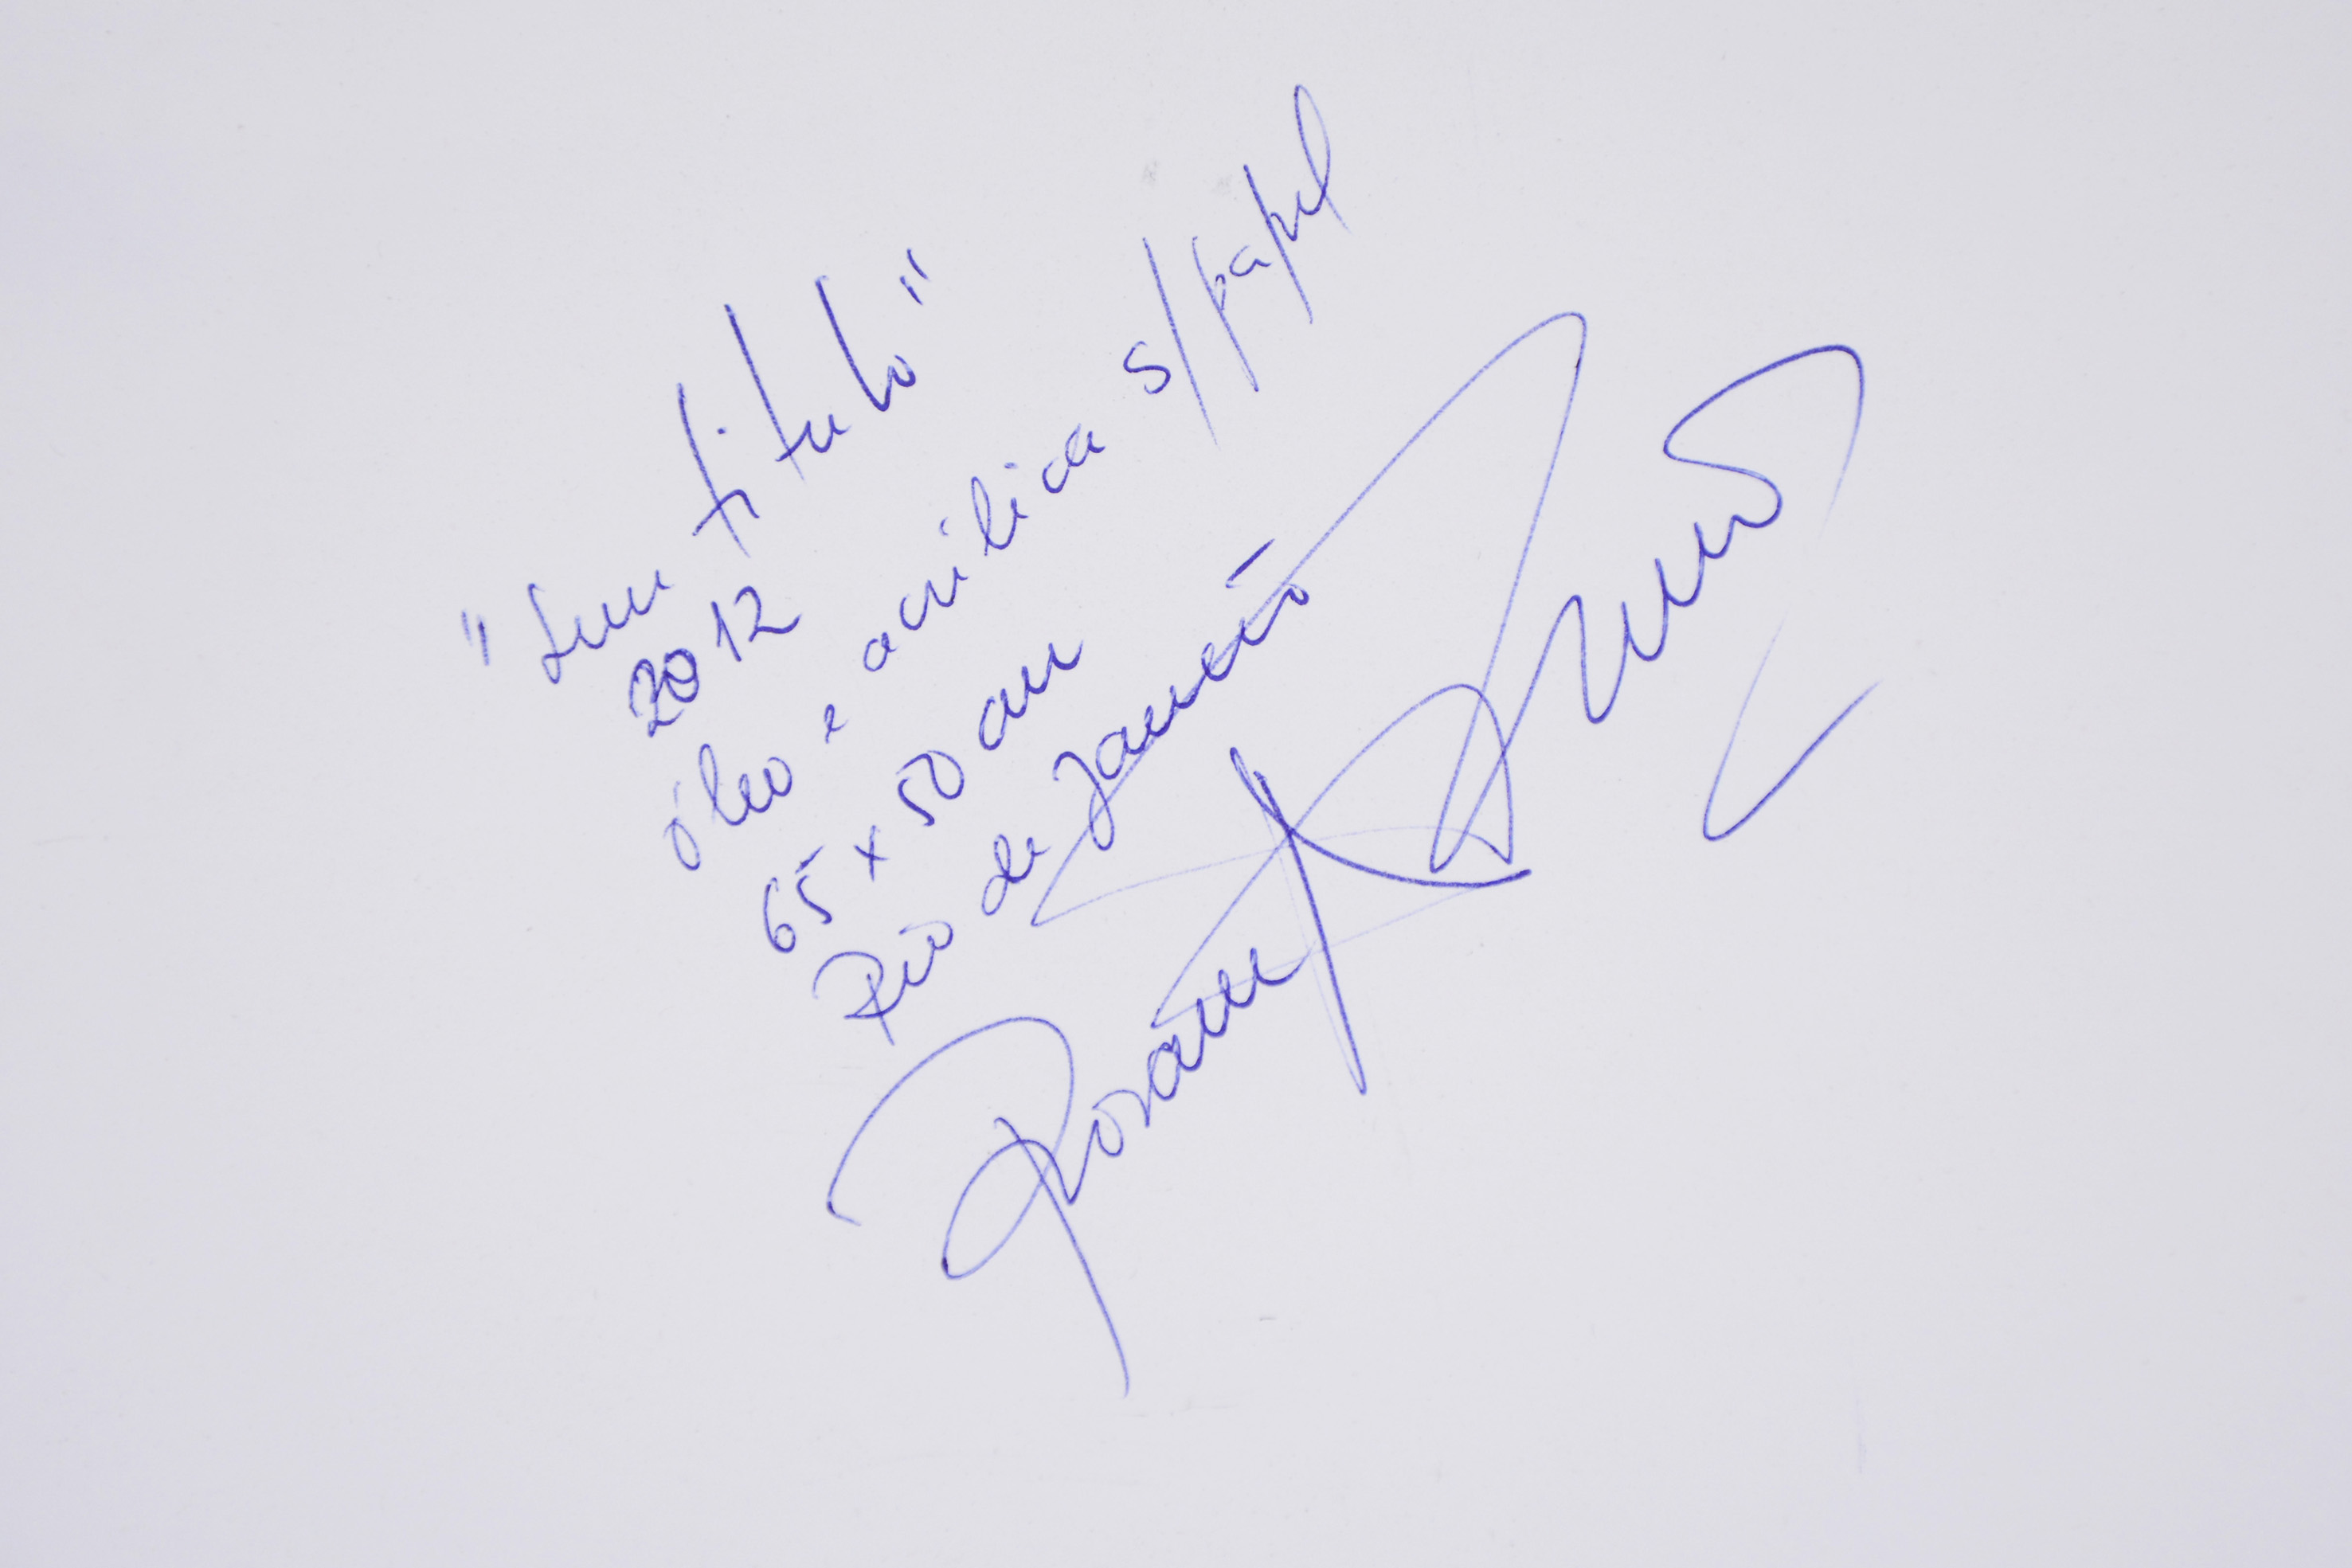 "Sem titulo"
2012
óleo e acrílica s/papel
65 x 50 cm
Rio de Janeiro